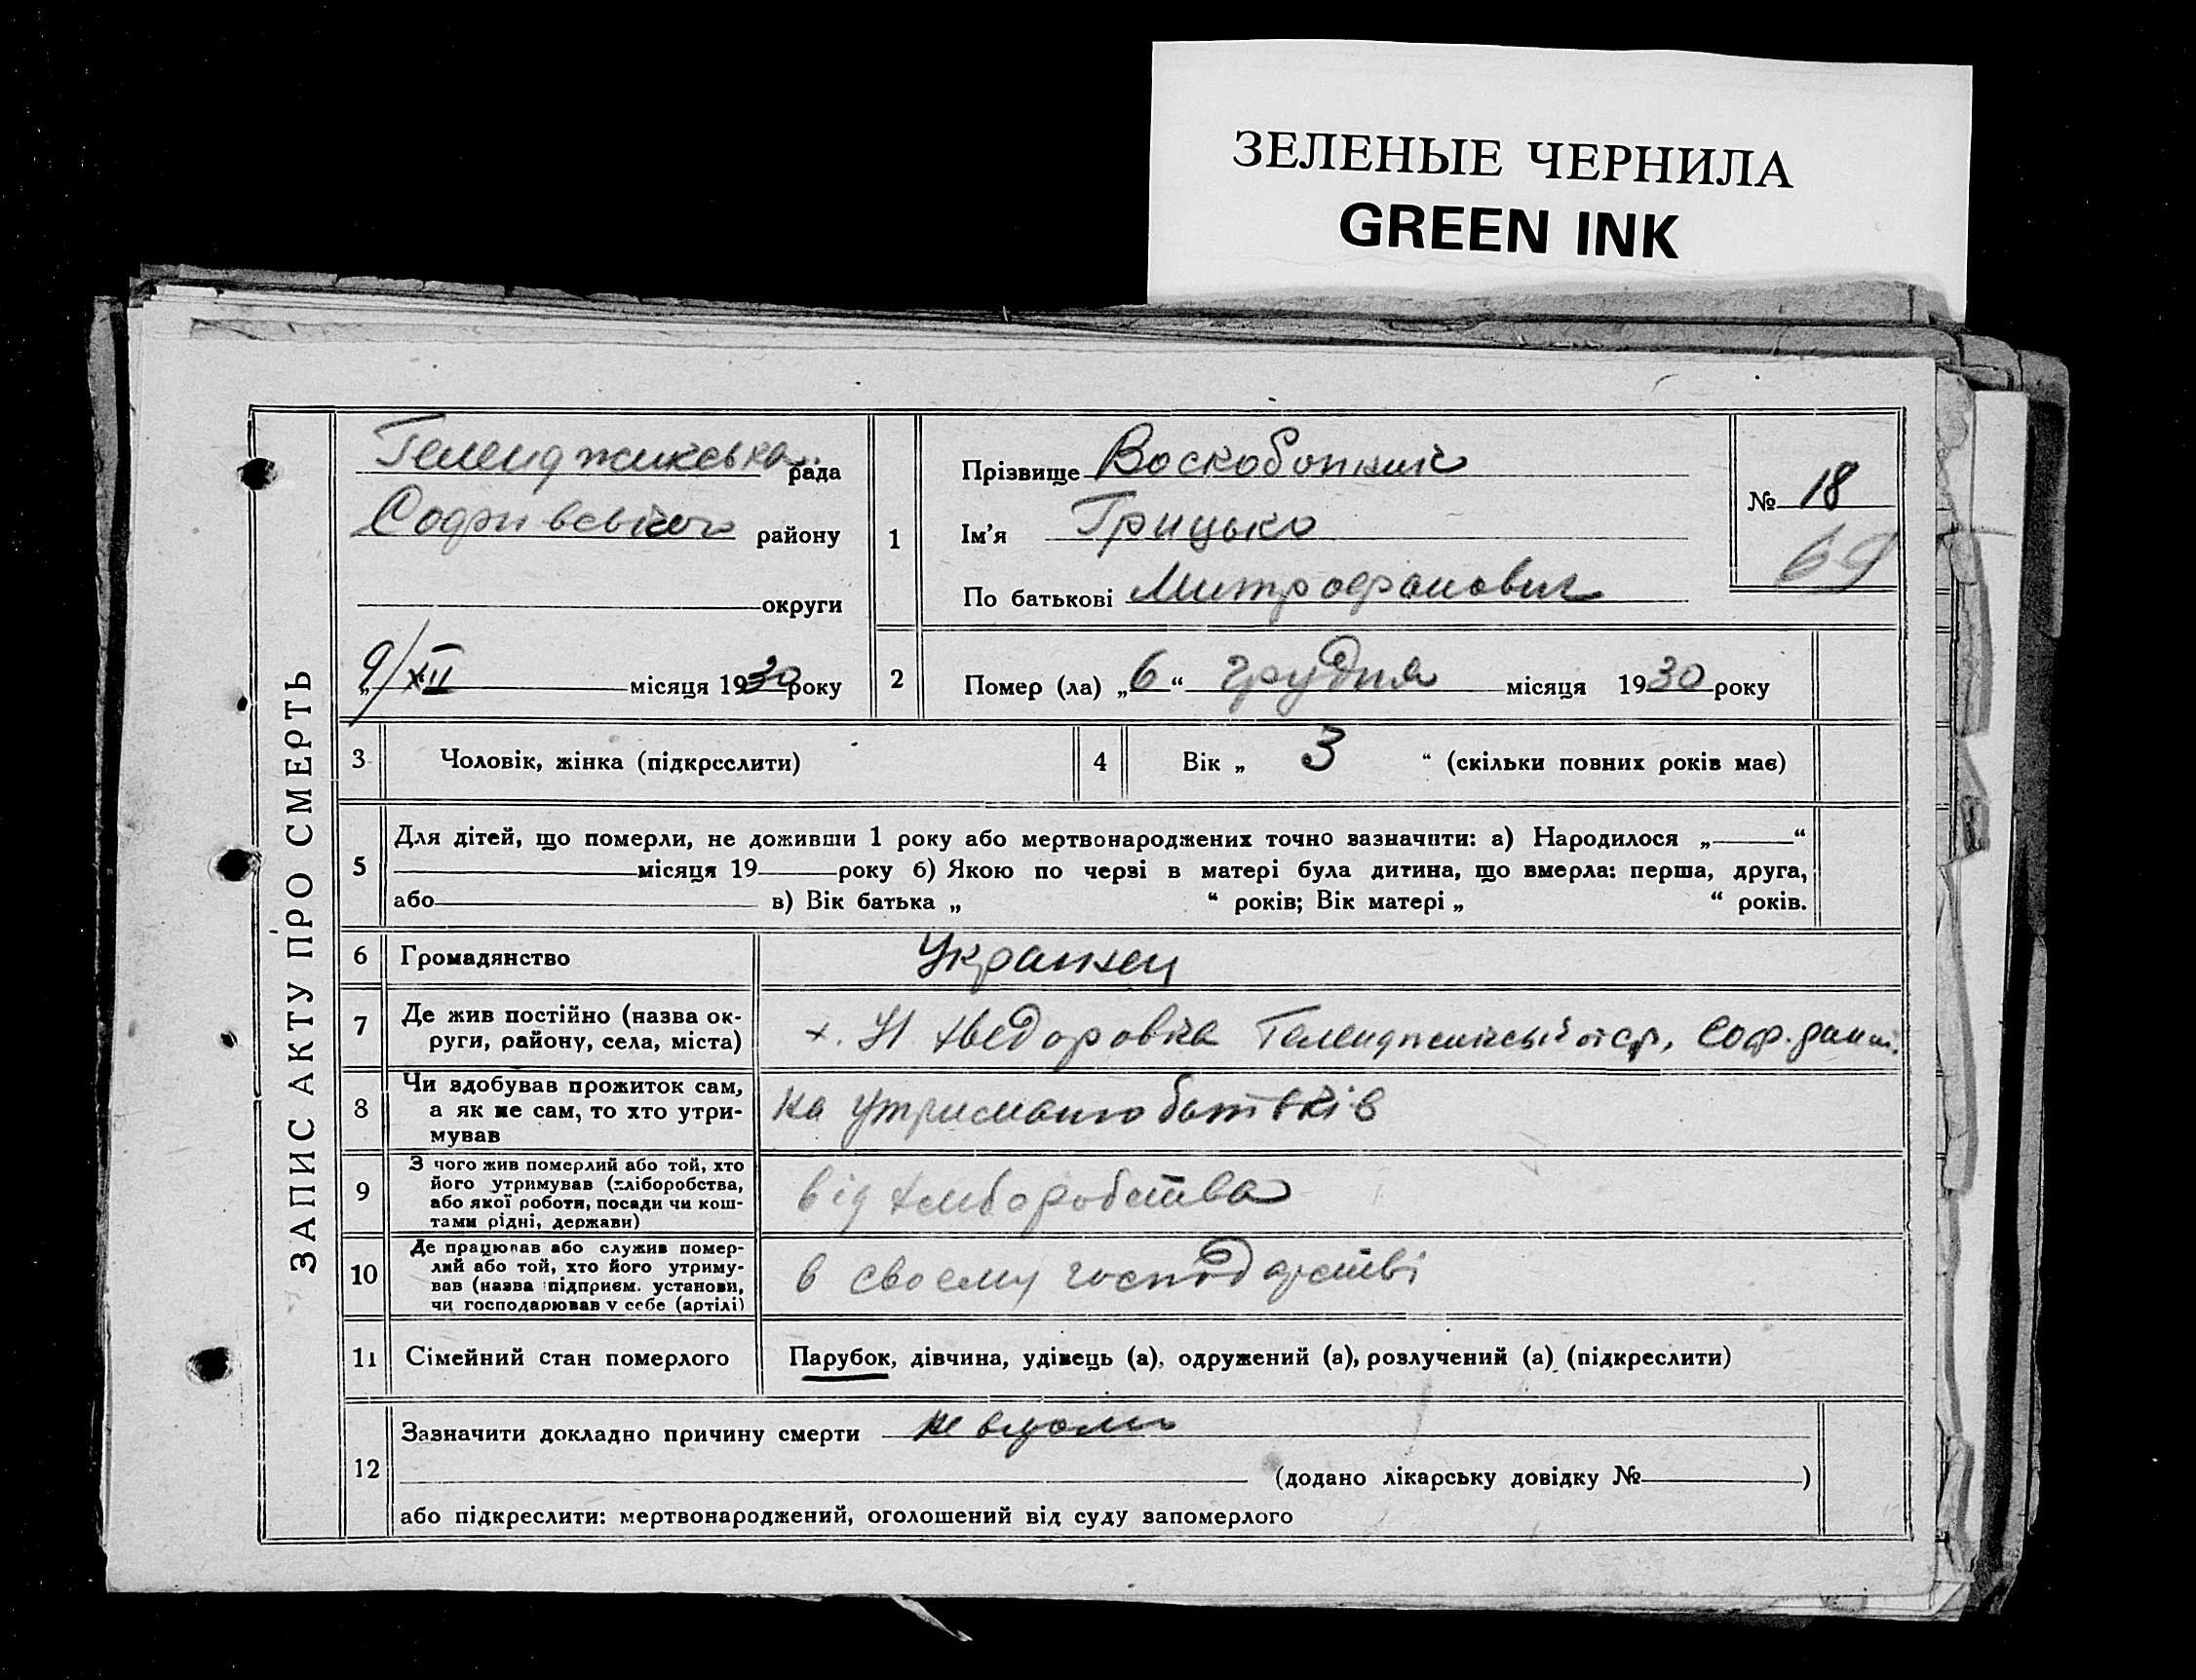 ЗЕЛЕНЫЕ ЧЕРНИЛА
GREEN INK
ЗАПИС АКТУ ПРО СМЕРТЬ
Геленджикська рада
Софиївського району
округи
9/XII місяця 1930 року
1
Прізвище Воскобойник
Ім'я Грицько
По батькові Митрофанович
№ 18
69
2
Помер (ла) „6“ грудня місяця 1930 року
3
Чоловік, жінка (підкреслити)
4
Вік „ 3 “ (скільки повних років має)
5
Для дітей, що померли, не доживши 1 року або мертвонароджених точно зазначити: а) Народилося „ “
місяця 19 року б) Якою по черзі в матері була дитина, що вмерла: перша, друга,
або в) Вік батька „ “ років; Вік матері „ “ років.
6
Громадянство
Украинец
7
Де жив постійно (назва ок-
руги, району, села, міста)
х. Н Хведоровка
8
Чи вдобував прожиток сам,
а як не сам, то хто утри-
мував
на утриманю батьків
9
З чого жив померлий або той, хто
його утримував (хліборобства,
або якої роботи, посади чи кош-
тами рідні, держави)
від хлиборобства
10
Де працював або служив помер-
лий або той, хто його утриму-
вав (назва підприєм. установи,
чи господарював у себе (артілі)
в своему господарстві
11
Сімейний стан померлого
Парубок, дівчина, удівець (а), одружений (а), розлучений (а) (підкреслити)
12
Зазначити докладно причину смерти не
(додано лікарську довідку № )
або підкреслити: мертвонароджений, оголошений від суду запомерлого